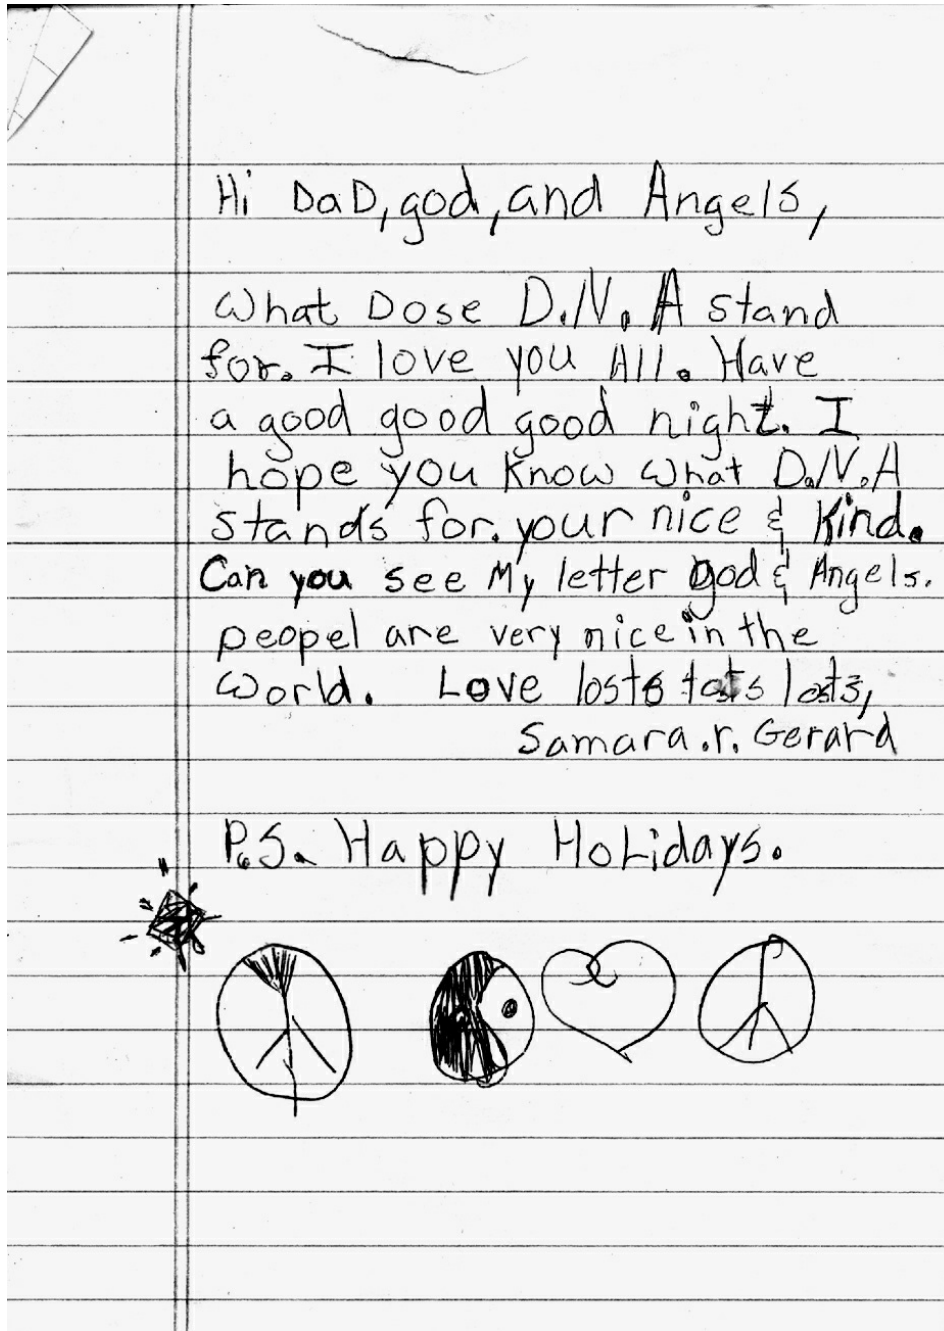 Hi DaD, god, and Angels,
What Dose D.N.A stand
for. I love you All. Have
a good good good night. I
hope you know what D.N.A
stands for. your nice & kind.
Can you see My letter god & Angels.
peopel are very nice in the
world. Love losts lots losts,
Samara .r. Gerard
P.S. Happy HoLidays.